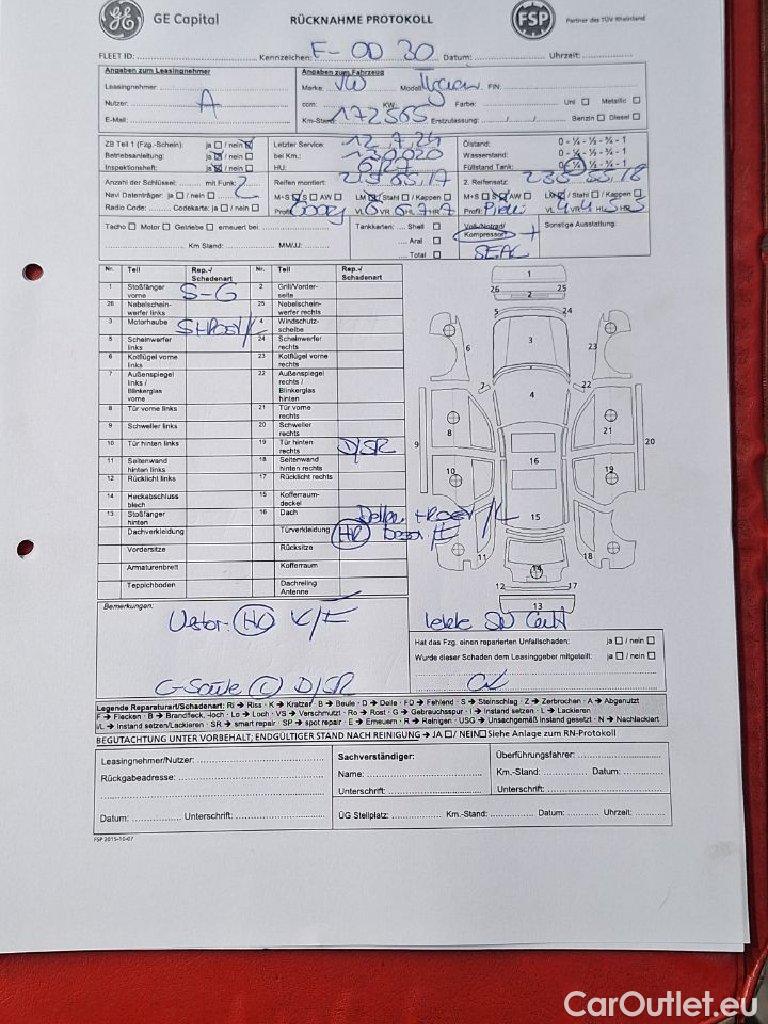 GE GE Capital RÜCKNAHME PROTOKOLL FSP Partner des TÜV Rheinland
FLEET ID: Kennzeichen: F-OD 30 Datum: Uhrzeit:
Angaben zum Leasingnehmer Angaben zum Fahrzeug
Leasingnehmer: Marke: VW Modell: FIN:
Nutzer: A ccm: KW: Farbe: Uni ☐ Metallic ☐
E-Mail: Km-Stand: 172565 Erstzulassung: / / Benzin ☐ Diesel ☐
ZB Teil 1 (Fzg.-Schein): ja ☐ / nein ☒ Letzter Service: 12.7.24 Ölstand: 0 - ¼ - ½ - ¾ - 1
Betriebsanleitung: ja ☒ / nein ☐ bei Km.: Wasserstand: 0 - ¼ - ½ - ¾ - 1
Inspektionsheft: ja ☒ / nein ☐ HU: Füllstand Tank: 0 - ¼ - ½ - ¾ - 1
Anzahl der Schlüssel: mit Funk: 2 Reifen montiert: 215 65 17 2. Reifensatz: 235 55 18
Navi Datenträger: ja ☐ / nein ☐ M+S ☒ S ☐ AW ☐ LM ☒ / Stahl ☐ / Kappen ☐ M+S ☐ S ☒ AW ☐ LM ☒ / Stahl ☐ / Kappen ☐
Radio Code: Codekarte: ja ☐ / nein ☐ Profil VL 6 VR 6 HL 7 HR 7 Profil VL 4 VR 4 HL 5 HR 5
Tacho ☐ Motor ☐ Getriebe ☐ erneuert bei Tankkarten: Shell ☐ Voll-/Notrad/ Sonstige Ausstattung:
Aral ☐ Kompressor +
Km Stand: MM/JJ: Total ☐ SEAL
Nr. Teil Rep.-/ Schadenart Nr. Teil Rep.-/ Schadenart
1 Stoßfänger vorne S-G 2 Grill/Vorderseite
26 Nebelscheinwerfer links 25 Nebelscheinwerfer rechts
3 Motorhaube 4 Windschutzscheibe
5 Scheinwerfer links 24 Scheinwerfer rechts
6 Kotflügel vorne links 23 Kotflügel vorne rechts
7 Außenspiegel links / Blinkerglas vorne 22 Außenspiegel rechts / Blinkerglas hinten
8 Tür vorne links 21 Tür vorne rechts
9 Schweller links 20 Schweller rechts
10 Tür hinten links 19 Tür hinten rechts D/SR
11 Seitenwand hinten links 18 Seitenwand hinten rechts
12 Rücklicht links 17 Rücklicht rechts
14 Heckabschluss blech 15 Kofferraumdeckel
13 Stoßfänger hinten 16 Dach
Dachverkleidung Türverkleidung HR
Vordersitze Rücksitze
Armaturenbrett Kofferraum
Teppichboden Dachreling Antenne
1
26 25
2
5 24
6 3 23
7 22
4
8 21
9 20
10 16 19
15
11 18
14
12 17
13
Bemerkungen:
Hat das Fzg. einen reparierten Unfallschaden: ja ☐ / nein ☐
Wurde dieser Schaden dem Leasinggeber mitgeteilt: ja ☐ / nein ☐
C-Säule D/SR
Legende Reparaturart/Schadenart: RI → Riss · K → Kratzer · B → Beule · D → Delle · FD → Fehlend · S → Steinschlag · Z → Zerbrochen · A → Abgenutzt
F → Flecken · B → Brandfleck, -loch · Lo → Loch · VS → Verschmutzt · Ro → Rost · G → Gebrauchsspur · I → Instand setzen · L → Lackieren
I/L → Instand setzen/Lackieren · SR → smart repair · SP → spot repair · E → Erneuern · R → Reinigen · USG → Unsachgemäß instand gesetzt · N → Nachlackiert
BEGUTACHTUNG UNTER VORBEHALT; ENDGÜLTIGER STAND NACH REINIGUNG → JA ☐ / NEIN ☐ Siehe Anlage zum RN-Protokoll
Leasingnehmer/Nutzer: Sachverständiger: Überführungsfahrer:
Rückgabeadresse: Name: Km.-Stand: Datum:
Unterschrift: Unterschrift:
Datum: Unterschrift: ÜG Stellplatz: Km.-Stand: Datum: Uhrzeit:
FSP 2015-10-07
CarOutlet.eu